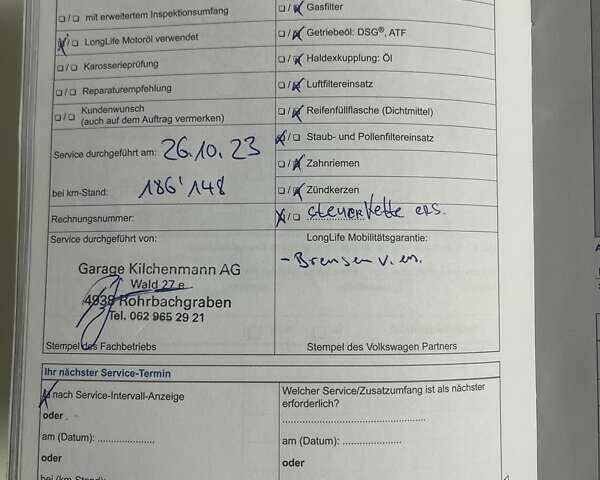 ☐/☐ mit erweitertem Inspektionsumfang
☒/☐ LongLife Motoröl verwendet
☐/☐ Karosserieprüfung
☐/☐ Reparaturempfehlung
☐/☐ Kundenwunsch
(auch auf dem Auftrag vermerken)
Service durchgeführt am: 26.10.23
bei km-Stand: 186'148
Rechnungsnummer:
Service durchgeführt von:
Garage Kilchenmann AG
Wald 27e
4938 Rohrbachgraben
Tel. 062 965 29 21
Stempel des Fachbetriebs
☐/☒ Gasfilter
☐/☒ Getriebeöl: DSG®, ATF
☐/☒ Haldexkupplung: Öl
☐/☒ Luftfiltereinsatz
☐/☒ Reifenfüllflasche (Dichtmittel)
☒/☐ Staub- und Pollenfiltereinsatz
☐/☒ Zahnriemen
☐/☒ Zündkerzen
☒/☐ Steuerkette ers.
LongLife Mobilitätsgarantie:
- Bremsen v. en.
Stempel des Volkswagen Partners
Ihr nächster Service-Termin
☒ nach Service-Intervall-Anzeige
oder
am (Datum): .....................
oder
Welcher Service/Zusatzumfang ist als nächster
erforderlich?
.....................................................
am (Datum): .....................
oder